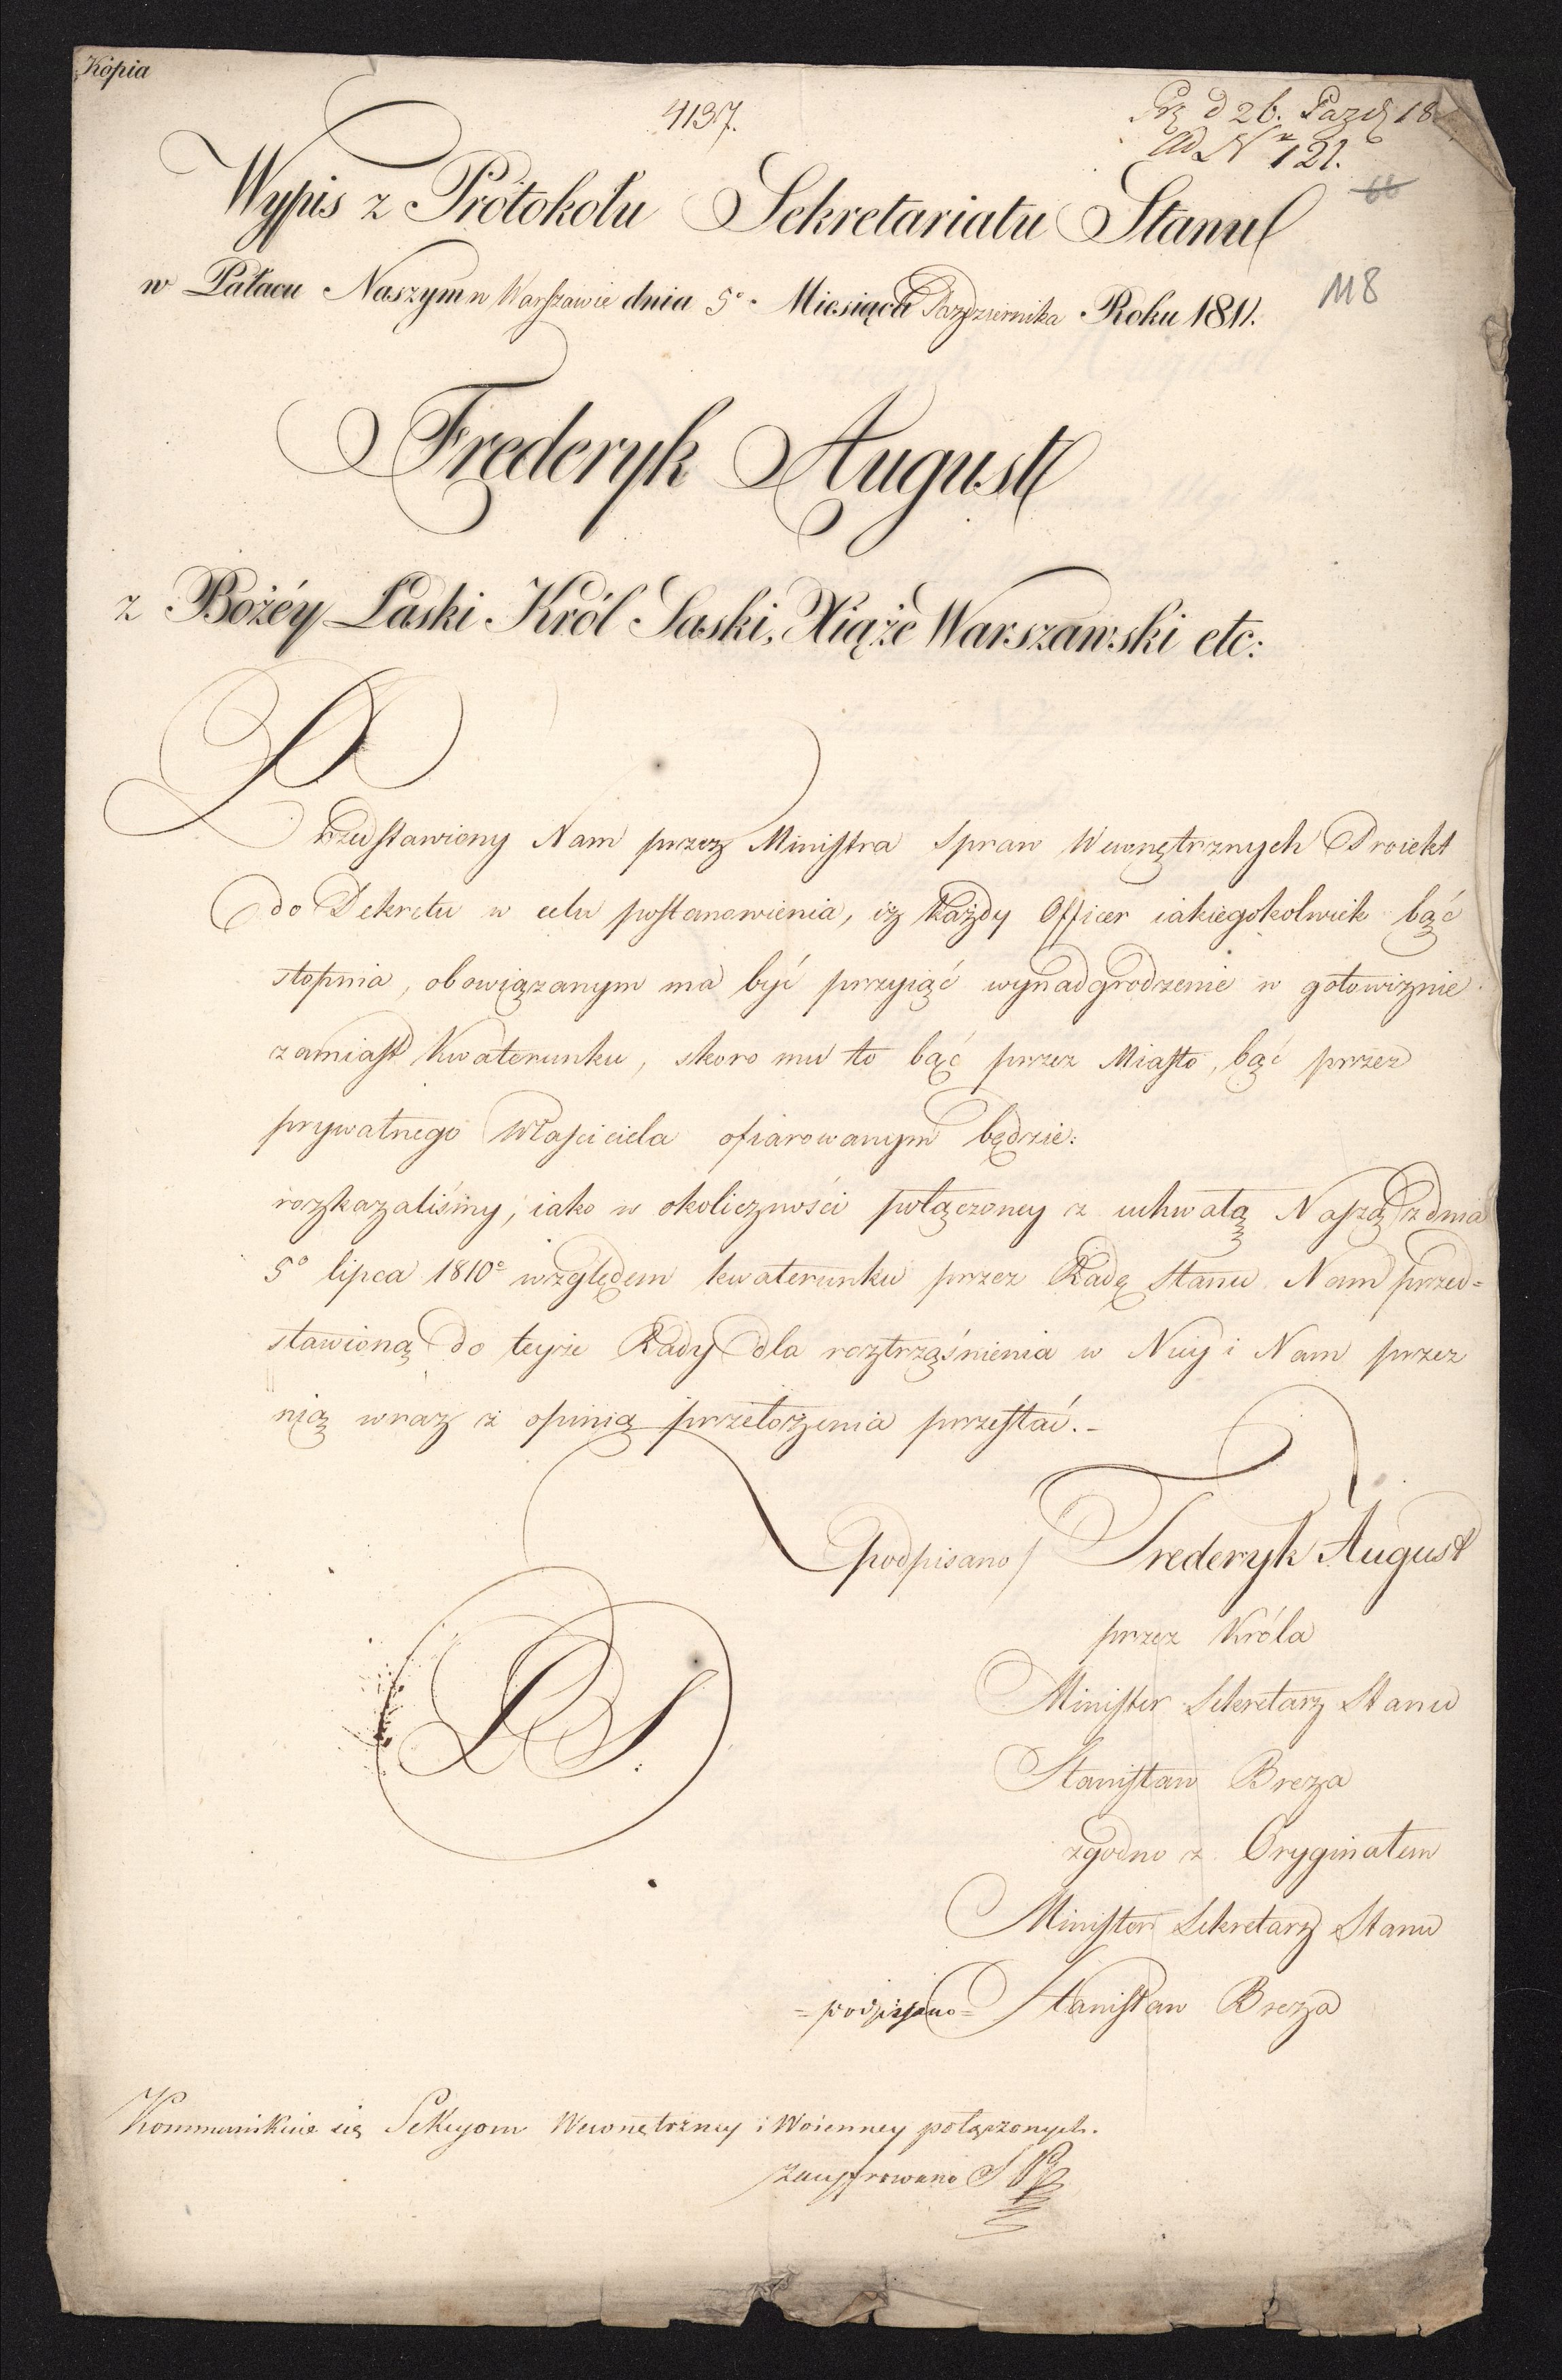 Kopia
4137.
Prz d 26. Pazdz 18
Ad Nr 121.
66
118
Wypis z Protokołu Sekretariatu Stanu
w Pałacu Naszym w Warszawie dnia 5º Miesiąca Pazdziernika Roku 1811.
Frederyk August
z Bożéy Łaski Król Saski, Xiąże Warszawski etc:
Przedstawiony Nam przez Ministra Spraw Wewnętrznych Proiekt
do Dekretu w celu postanowienia, iż każdy Officer iakiegokolwiek bąć
stopnia, obowiązanym ma być przyiąć wynadgrodzenie w gotowiznie
zamiast kwaterunku, skoro mu to bąć przez Miasto, bąć przez
prywatnego Właściciela ofiarowanym będzie:
rozkazaliśmy, iako w okoliczności połączoney z uchwałą Naszą z dnia
5º lipca 1810º względem kwaterunku przez Radę Stanu Nam przed=
stawioną do teyże Rady dla roztrząśnienia w Niey i Nam przez
nią wraz z opinią przełożenia przesłać.-
podpisano/ Frederyk August
przez Króla
Minister Sekretarz Stanu
Stanisław Breza
LS
zgodno z Oryginałem
Minister Sekretarz Stanu
=podpisano= Stanisław Breza
Kommunikuie się Sekcyom Wewnętrzney i Woienney połączonych.
zaszyfrowano S